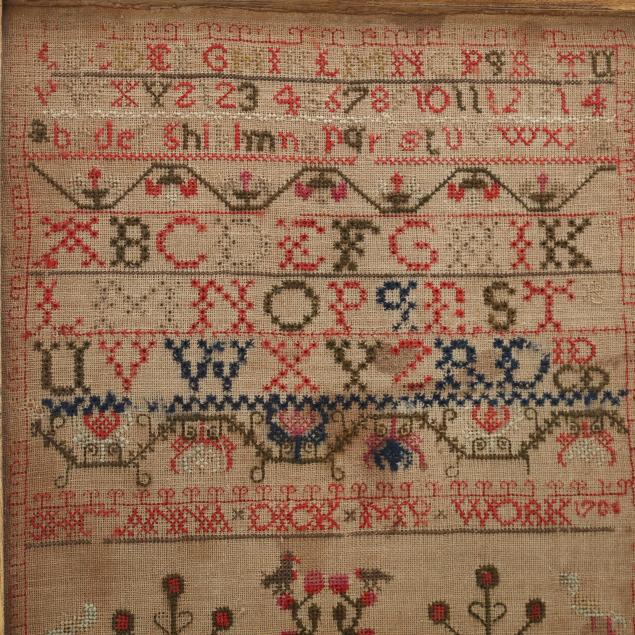 C D E G H I L M N P q R T U
V X Y Z 1 2 3 4 6 7 8 10 11 12 1 4
a b d e g h i l m n p q r s t u v w x
A B C D E F G H I K
L M N O P q R S T
U V W X Y Z R D
ANNA × DICK × MY × WORK